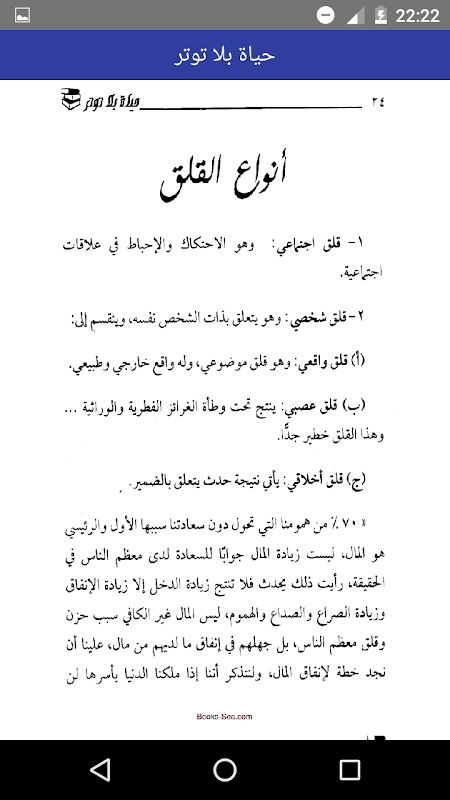 22:22
حياة بلا توتر
٢٤ حياة بلا توتر
أنواع القلق
١- قلق اجتماعي: وهو الاحتكاك والإحباط في علاقات
اجتماعية.
٢- قلق شخصي: وهو يتعلق بذات الشخص نفسه، وينقسم إلى:
(أ) قلق واقعي: وهو قلق موضوعي، وله واقع خارجي وطبيعي.
(ب) قلق عصبي: ينتج تحت وطأة الغرائز الفطرية والوراثية ...
وهذا القلق خطير جدًّا.
(ج) قلق أخلاقي: يأتي نتيجة حدث يتعلق بالضمير.
« ٧٠ ٪ من همومنا التي تحول دون سعادتنا سببها الأول والرئيسي
هو المال، ليست زيادة المال جوابًا للسعادة لدى معظم الناس في
الحقيقة، رأيت ذلك يحدث فلا تنتج زيادة الدخل إلا زيادة الإنفاق
وزيادة الصراع والصداع والهموم، ليس المال غير الكافي سبب حزن
وقلق معظم الناس، بل جهلهم في إنفاق ما لديهم من مال، علينا أن
نجد خطة لإنفاق المال، ولنتذكر أننا إذا ملكنا الدنيا بأسرها لن
Books-Sea.com